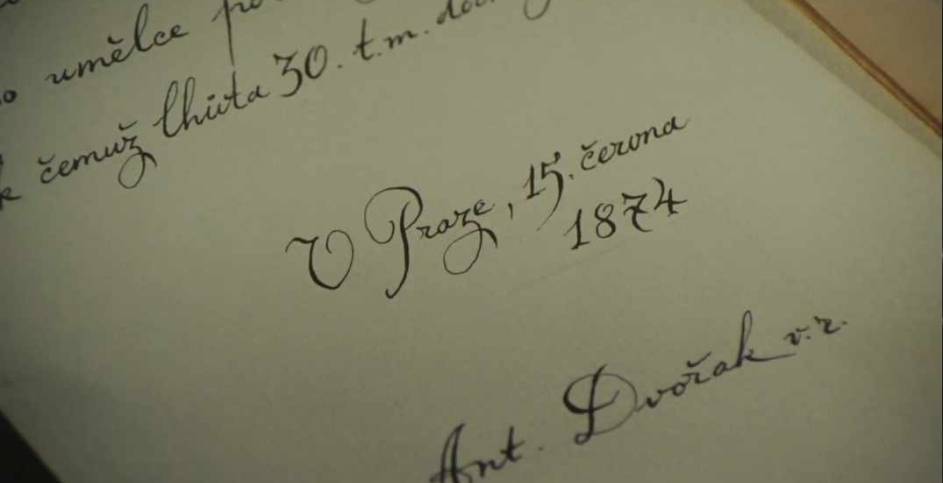 umělce
čemuž lhůta 30. t. m.
V Praze, 15. června
1874
Ant. Dvořak v. r.